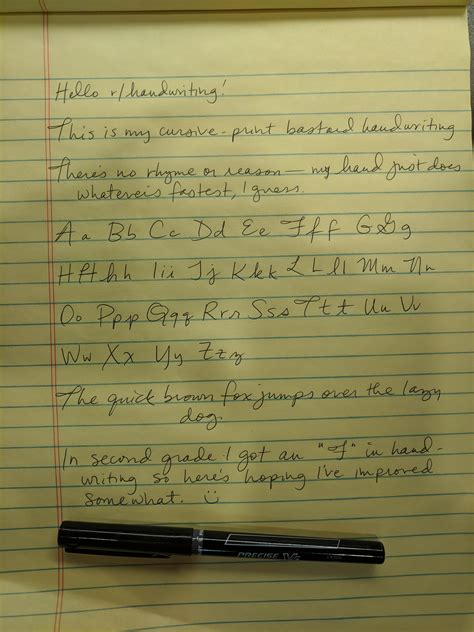 Hello r/handwriting!
This is my cursive-print bastard handwriting
There's no rhyme or reason — my hand just does
whatever is fastest, I guess.
A a B b C c D d E e F f f G G g
H H h h I i i J j K k k L L l l M m N n
O o P p p Q q q R r r S s s T t t U u V v
W w X x Y y Z z z
The quick brown fox jumps over the lazy
dog.
In second grade I got an "I" in hand-
writing so here's hoping I've improved
somewhat. ☺
PRECISE V5